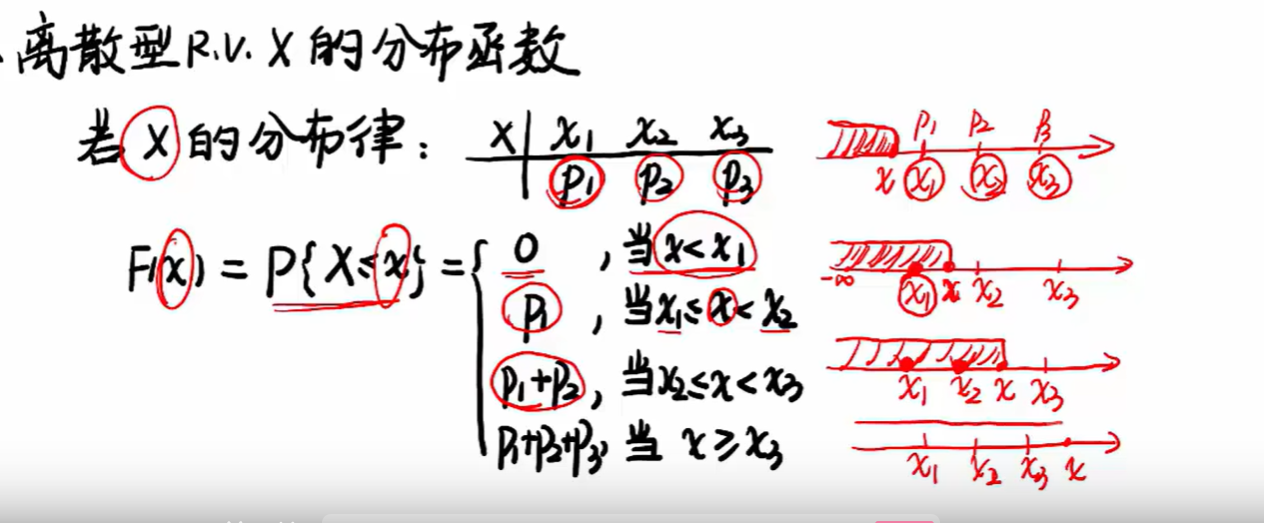 离散型R.V. X的分布函数
若X的分布律：
X x₁ x₂ x₃
p₁ p₂ p₃
F(x) = P{X≤x} = { 0 ，当x<x₁
p₁ ，当x₁≤x<x₂
p₁+p₂，当x₂≤x<x₃
p₁+p₂+p₃，当 x≥x₃
p₁ p₂ p₃
x x₁ x₂ x₃
-∞ x₁ x x₂ x₃
x₁ x₂ x x₃
x₁ x₂ x₃ x